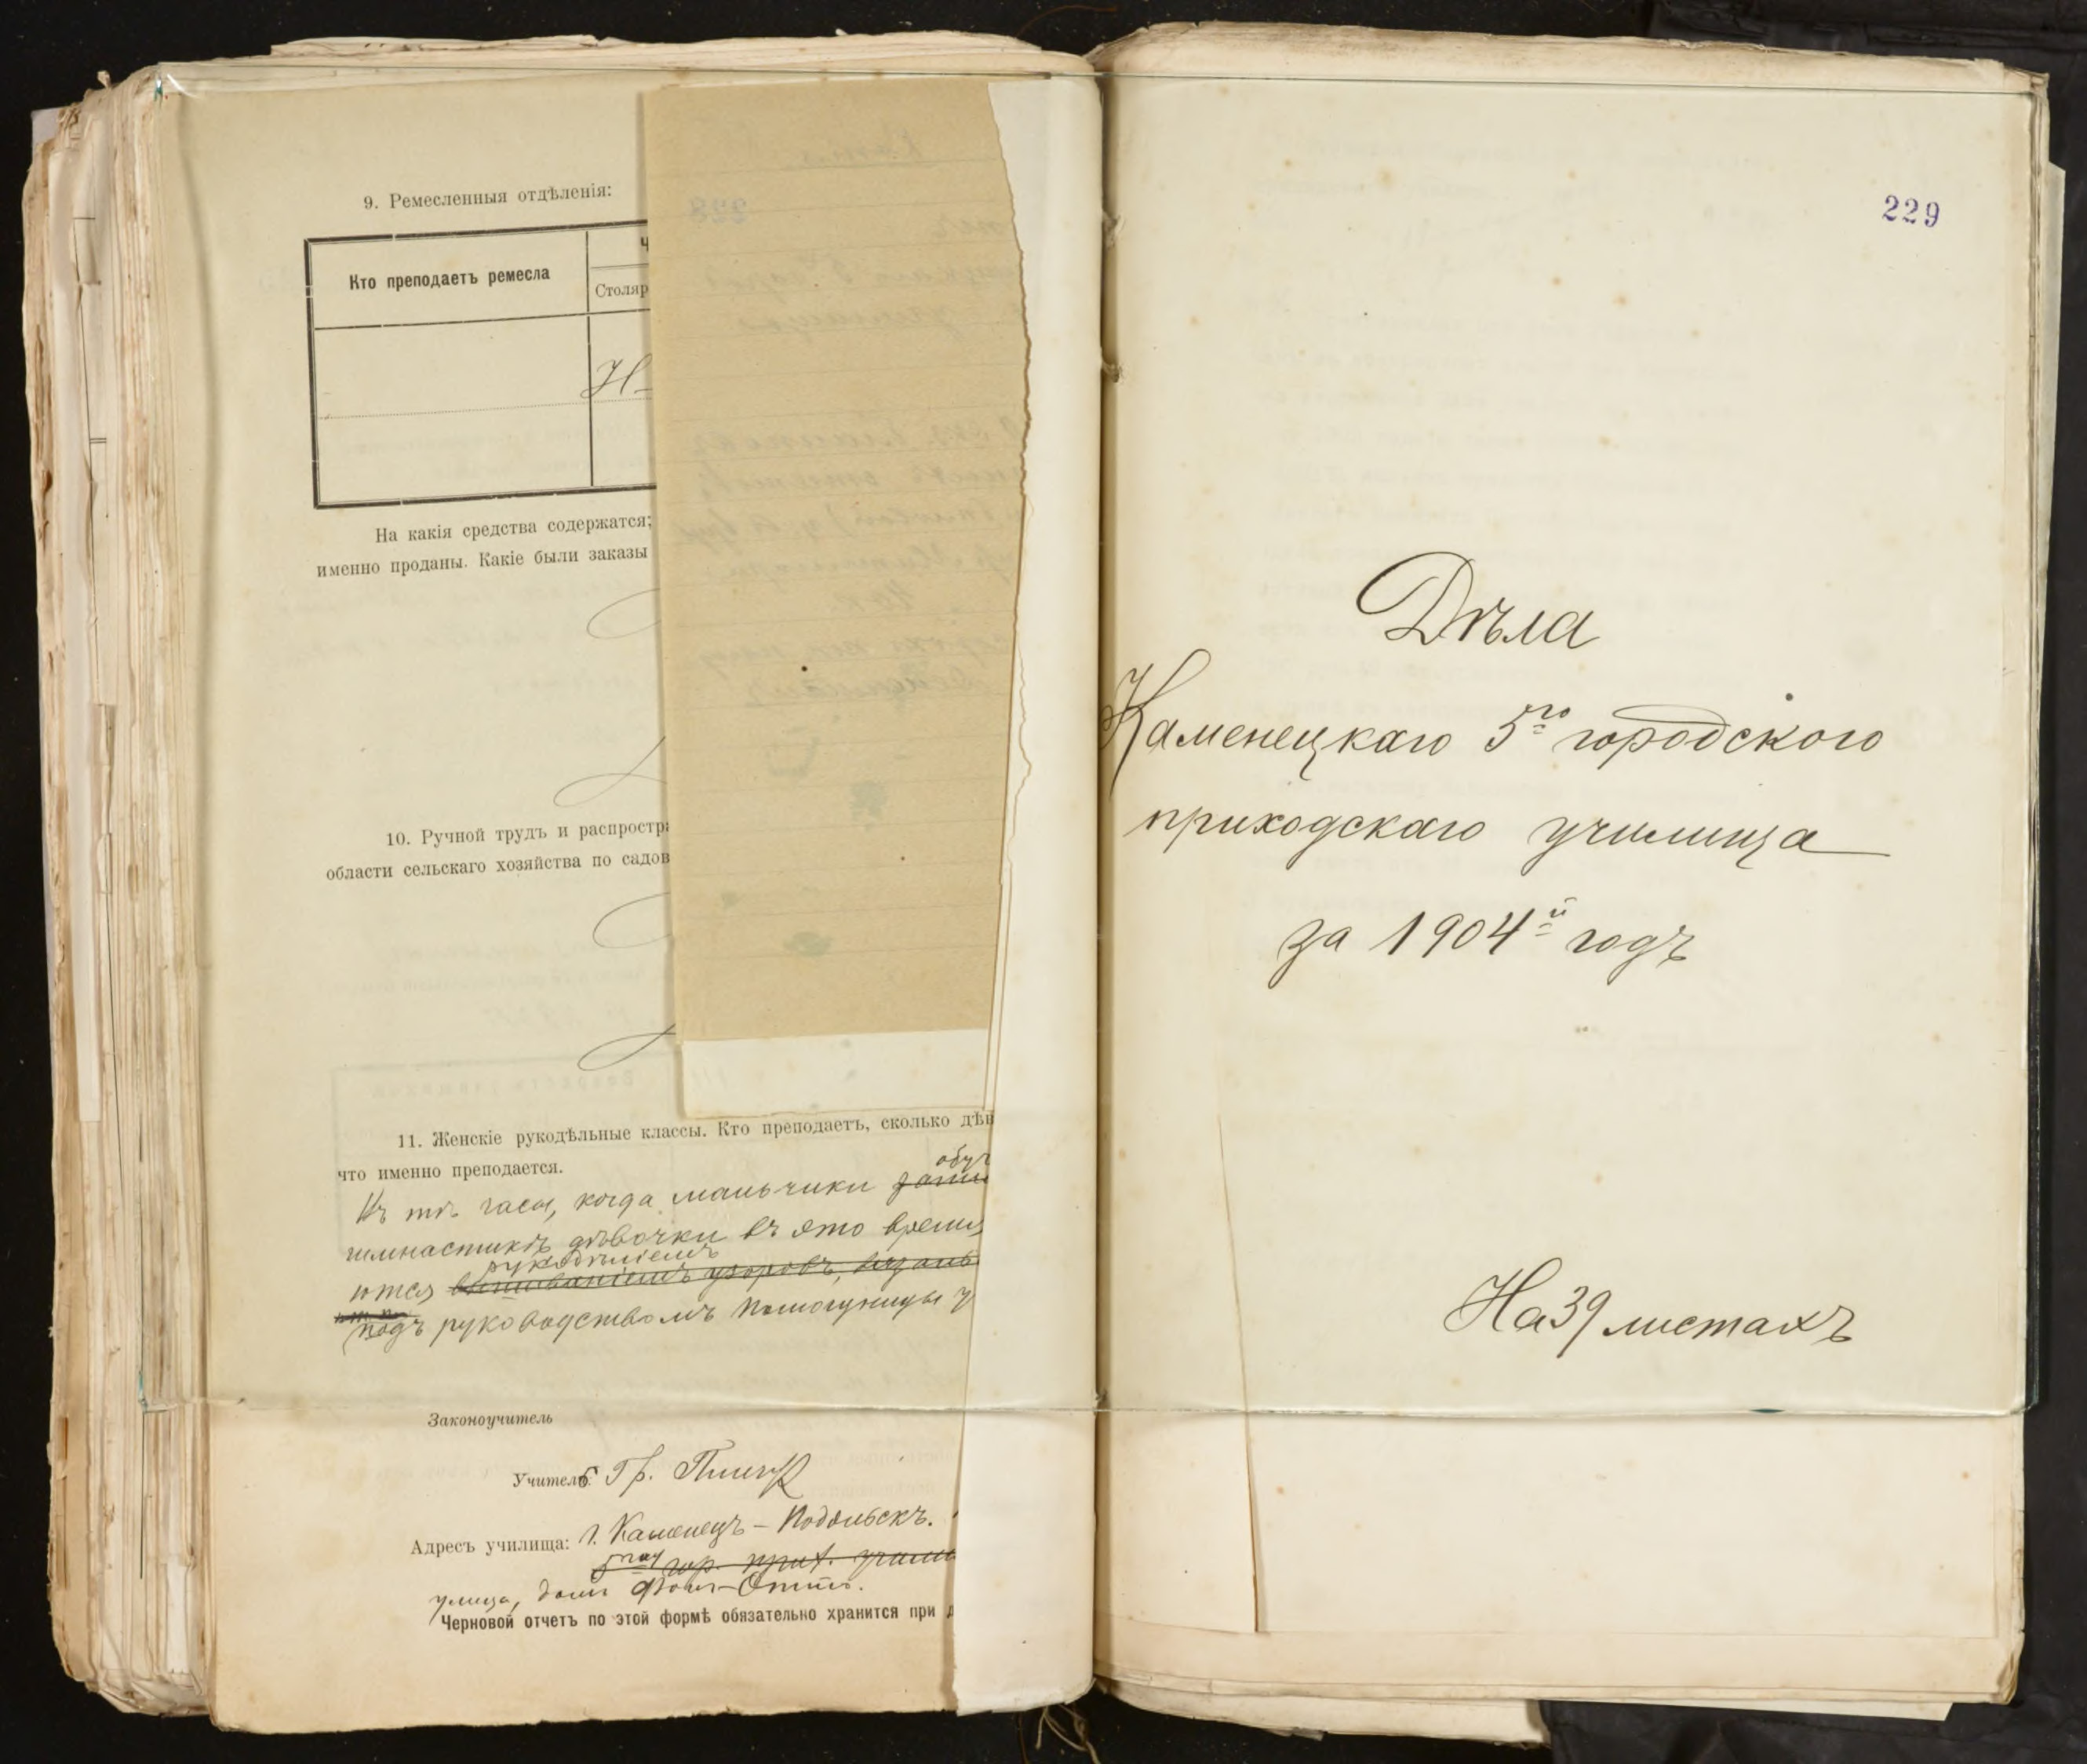 9. Ремесленныя отдѣленія:
Кто преподаетъ ремесла
Ч
Столяр
Н
На какія средства содержатся;
именно проданы. Какіе были заказы
10. Ручной трудъ и распростра
области сельскаго хозяйства по садов
11. Женскіе рукодѣльные классы. Кто преподаетъ, сколько дѣв
что именно преподается.
обуч
Въ тѣ часы, когда мальчики зани
гимнастикѣ дѣвочки въ это время
рукодѣліемъ
ются вышиваніемъ узоровъ, вязань
подъ руководствомъ помощницы у
Законоучитель
Учитель: Гр.
Адресъ училища: г. Каменецъ-Подольскъ.
5тое гор. прих. учили
улица, домъ
Черновой отчетъ по этой формѣ обязательно хранится при д
229
Дѣла
Каменецкаго 5го городского
приходскаго училища
за 1904й годъ
На 39 листахъ